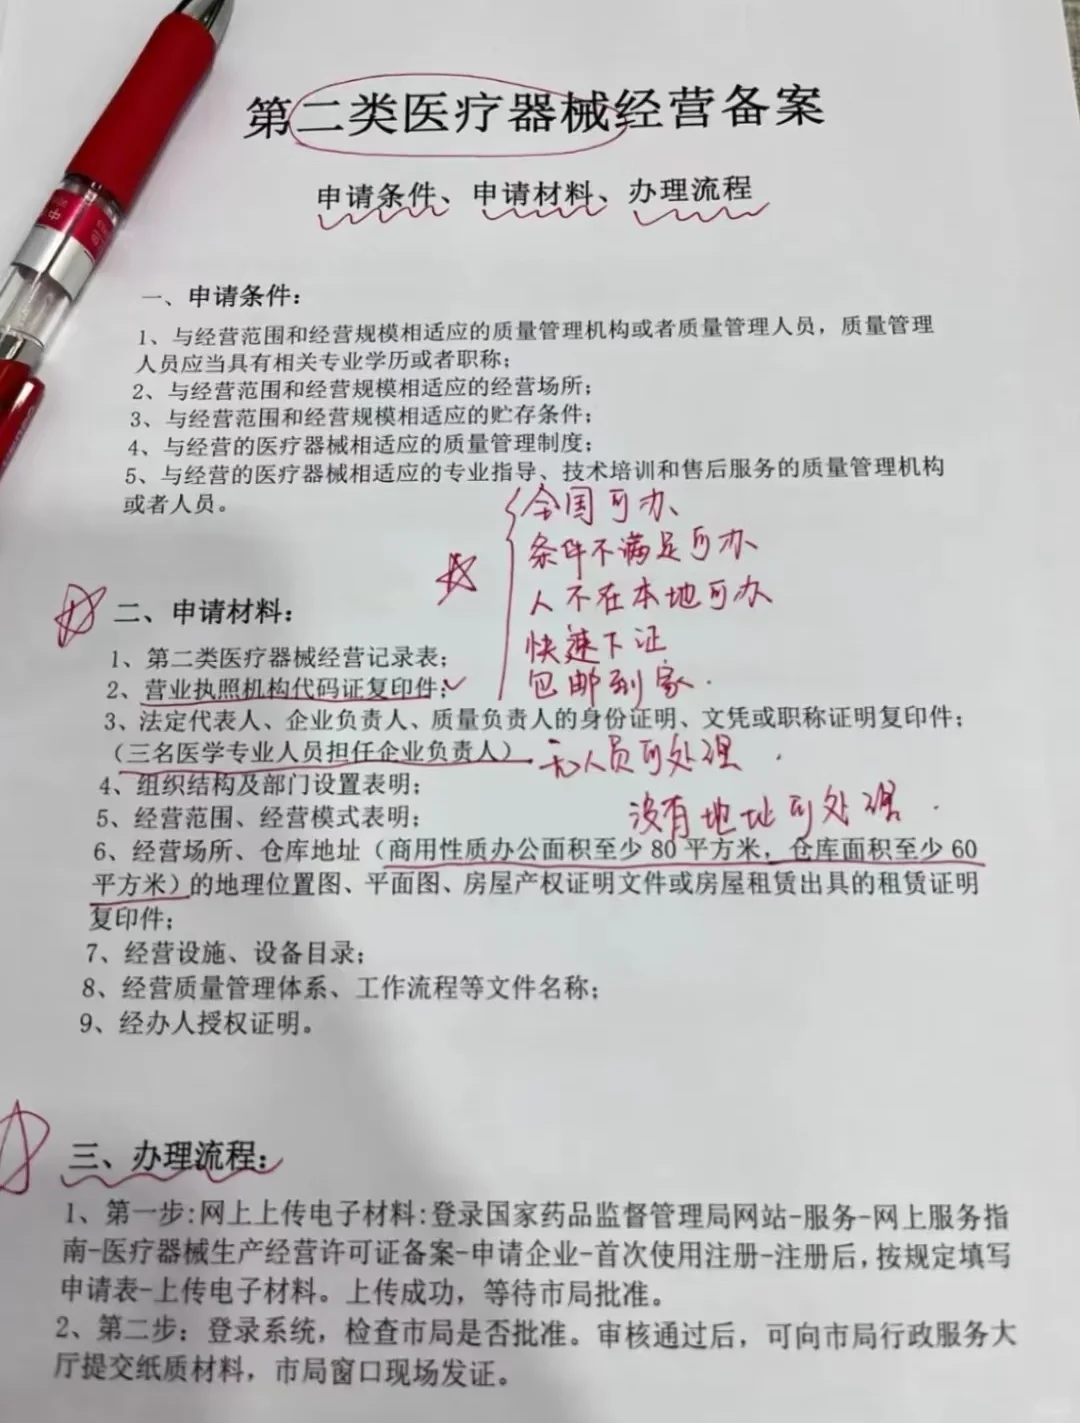 第二类医疗器械经营备案
申请条件、申请材料、办理流程
一、申请条件:
1、与经营范围和经营规模相适应的质量管理机构或者质量管理人员，质量管理
人员应当具有相关专业学历或者职称;
2、与经营范围和经营规模相适应的经营场所;
3、与经营范围和经营规模相适应的贮存条件;
4、与经营的医疗器械相适应的质量管理制度;
5、与经营的医疗器械相适应的专业指导、技术培训和售后服务的质量管理机构
或者人员。
全国可办、
条件不满足可办
人不在本地可办
快速下证
包邮到家.
二、申请材料:
1、第二类医疗器械经营记录表;
2、营业执照机构代码证复印件;
3、法定代表人、企业负责人、质量负责人的身份证明、文凭或职称证明复印件;
（三名医学专业人员担任企业负责人）
无人员可处理.
4、组织结构及部门设置表明;
5、经营范围、经营模式表明;
没有地址可处理.
6、经营场所、仓库地址（商用性质办公面积至少80平方米，仓库面积至少60
平方米）的地理位置图、平面图、房屋产权证明文件或房屋租赁出具的租赁证明
复印件;
7、经营设施、设备目录;
8、经营质量管理体系、工作流程等文件名称;
9、经办人授权证明。
三、办理流程:
1、第一步:网上上传电子材料:登录国家药品监督管理局网站-服务-网上服务指
南-医疗器械生产经营许可证备案-申请企业-首次使用注册-注册后,按规定填写
申请表-上传电子材料。上传成功，等待市局批准。
2、第二步：登录系统，检查市局是否批准。审核通过后，可向市局行政服务大
厅提交纸质材料，市局窗口现场发证。